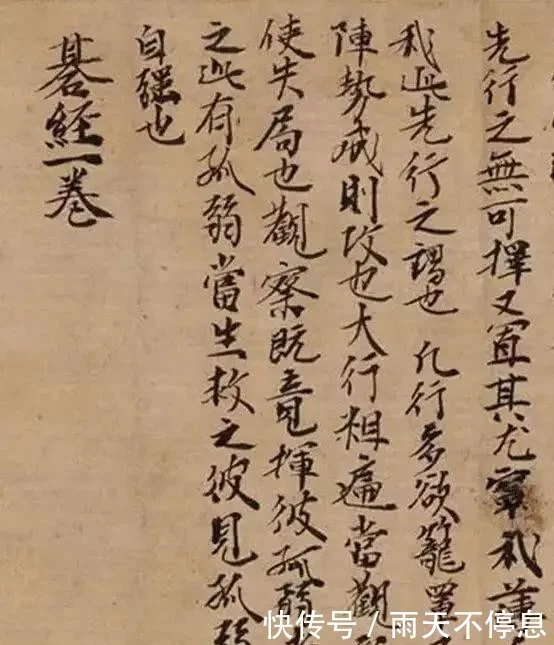 先行之無可擇又宜其尤
我此先行之謂也凡行多欲籠置
陣勢成則攻也大行粗遍當觀
使失局也觀察既竟揮彼孤弱
之此有孤弱當生救之彼見孤弱
自强也
碁經一卷
快传号/雨天不停息